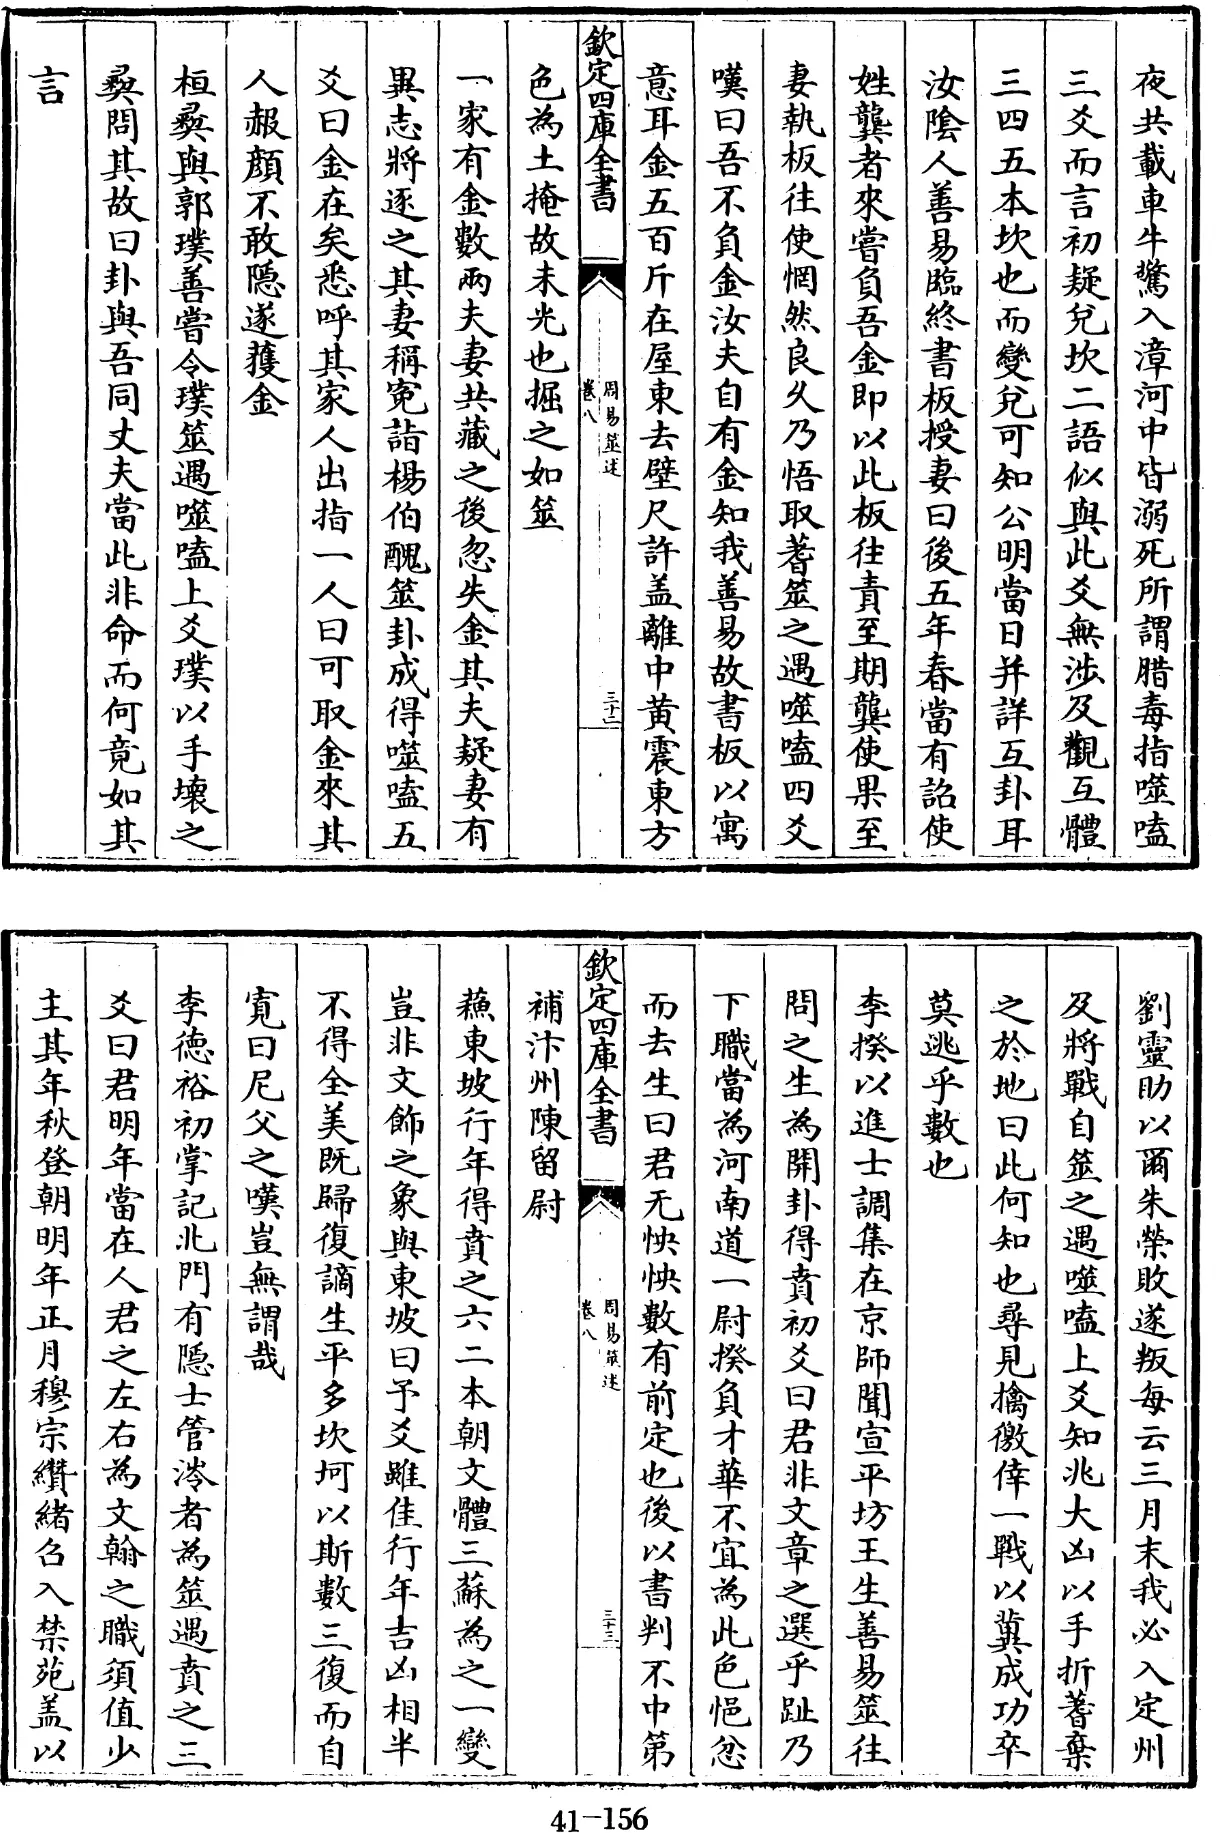 夜共載車牛驚入漳河中皆溺死所謂腊毒指噬嗑
三爻而言初疑兌坎二語似與此爻無涉及觀互體
三四五本坎也而變兌可知公明當日并詳互卦耳
汝陰人善易臨終書板授妻曰後五年春當有詔使
姓龔者來嘗負吾金即以此板往責至期龔使果至
妻執板往使惘然良久乃悟取蓍筮之遇噬嗑四爻
嘆曰吾不負金汝夫自有金知我善易故書板以寓
意耳金五百斤在屋東去壁尺許盖離中黄震東方
欽定四庫全書
周易筮述
卷八
三十二
色為土掩故未光也掘之如筮
一家有金數兩夫妻共藏之後忽失金其夫疑妻有
異志將逐之其妻稱寃詣楊伯醜筮卦成得噬嗑五
爻曰金在矣悉呼其家人出指一人曰可取金來其
人赧顔不敢隠遂獲金
桓彛與郭璞善嘗令璞筮遇噬嗑上爻璞以手壊之
彛問其故曰卦與吾同丈夫當此非命而何竟如其
言
劉靈助以爾朱榮敗遂叛每云三月末我必入定州
及將戰自筮之遇噬嗑上爻知兆大凶以手折蓍棄
之於地曰此何知也尋見擒徼倖一戰以冀成功卒
莫逃乎數也
李揆以進士調集在京師聞宣平坊王生善易筮往
問之生為開卦得賁初爻曰君非文章之選乎趾乃
下職當為河南道一尉揆負才華不宜為此色悒忿
而去生曰君无怏怏數有前定也後以書判不中第
欽定四庫全書
周易筮述
卷八
三十三
補汴州陳留尉
蘓東坡行年得賁之六二本朝文體三蘇為之一變
豈非文飾之象與東坡曰予爻雖佳行年吉凶相半
不得全美既歸復謫生平多坎坷以斯數三復而自
寛曰尼父之嘆豈無謂哉
李德裕初掌記北門有隠士管涔者為筮遇賁之三
爻曰君明年當在人君之左右為文翰之職須值少
主其年秋登朝明年正月穆宗纘緒召入禁苑盖以
41-156